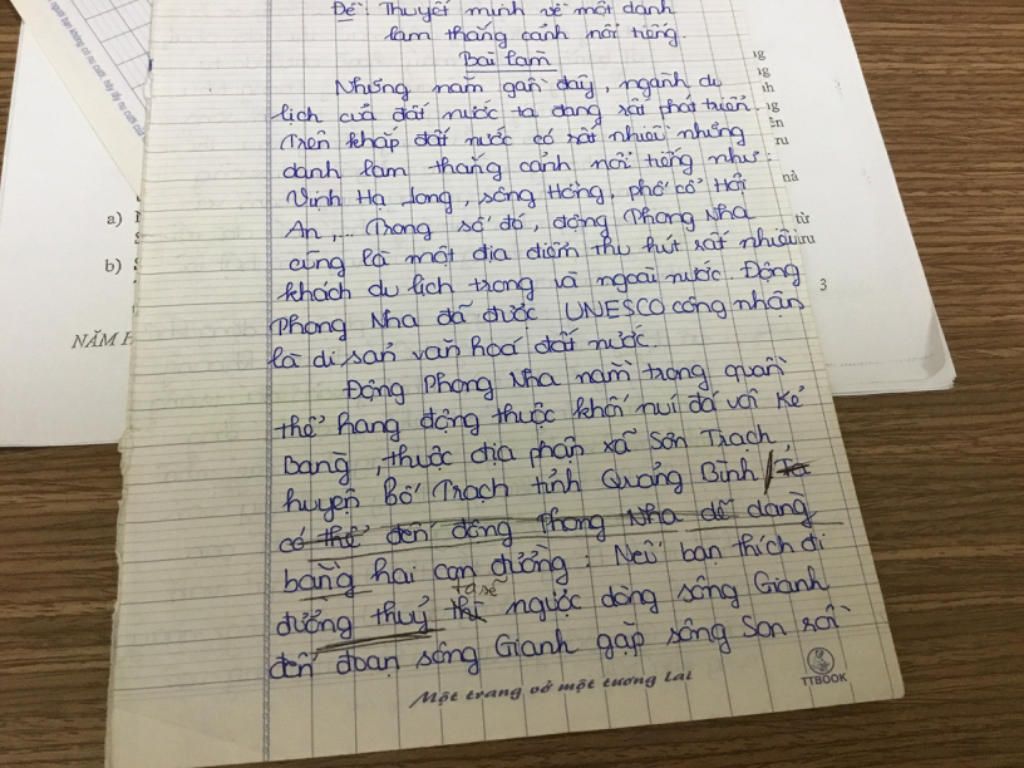 Đề: Thuyết minh về một danh
lam thắng cảnh nổi tiếng.
Bài làm
Những năm gần đây, ngành du
lịch của đất nước ta đang rất phát triển.
Trên khắp đất nước có rất nhiều những
danh lam thắng cảnh nổi tiếng như:
Vịnh Hạ Long, sông Hương, phố cổ Hội
An,... Trong số đó, động Phong Nha
cũng là một địa điểm thu hút rất nhiều
khách du lịch trong và ngoài nước. Động
Phong Nha đã được UNESCO công nhận
là di sản văn hoá đất nước.
Động Phong Nha nằm trong quần
thể hang động thuộc khối núi đá vôi Kẻ
Bàng, thuộc địa phận xã Sơn Trạch,
huyện Bố Trạch tỉnh Quảng Bình / Ta
có thể đến động Phong Nha dễ dàng
bằng hai con đường: Nếu bạn thích đi
ta sẽ
đường thuỷ thì ngược dòng sông Gianh
đến đoạn sông Gianh gặp sông Son rồi
Một trang vở một tương lai
TTBOOK
a)
b)
NĂM
từ
3